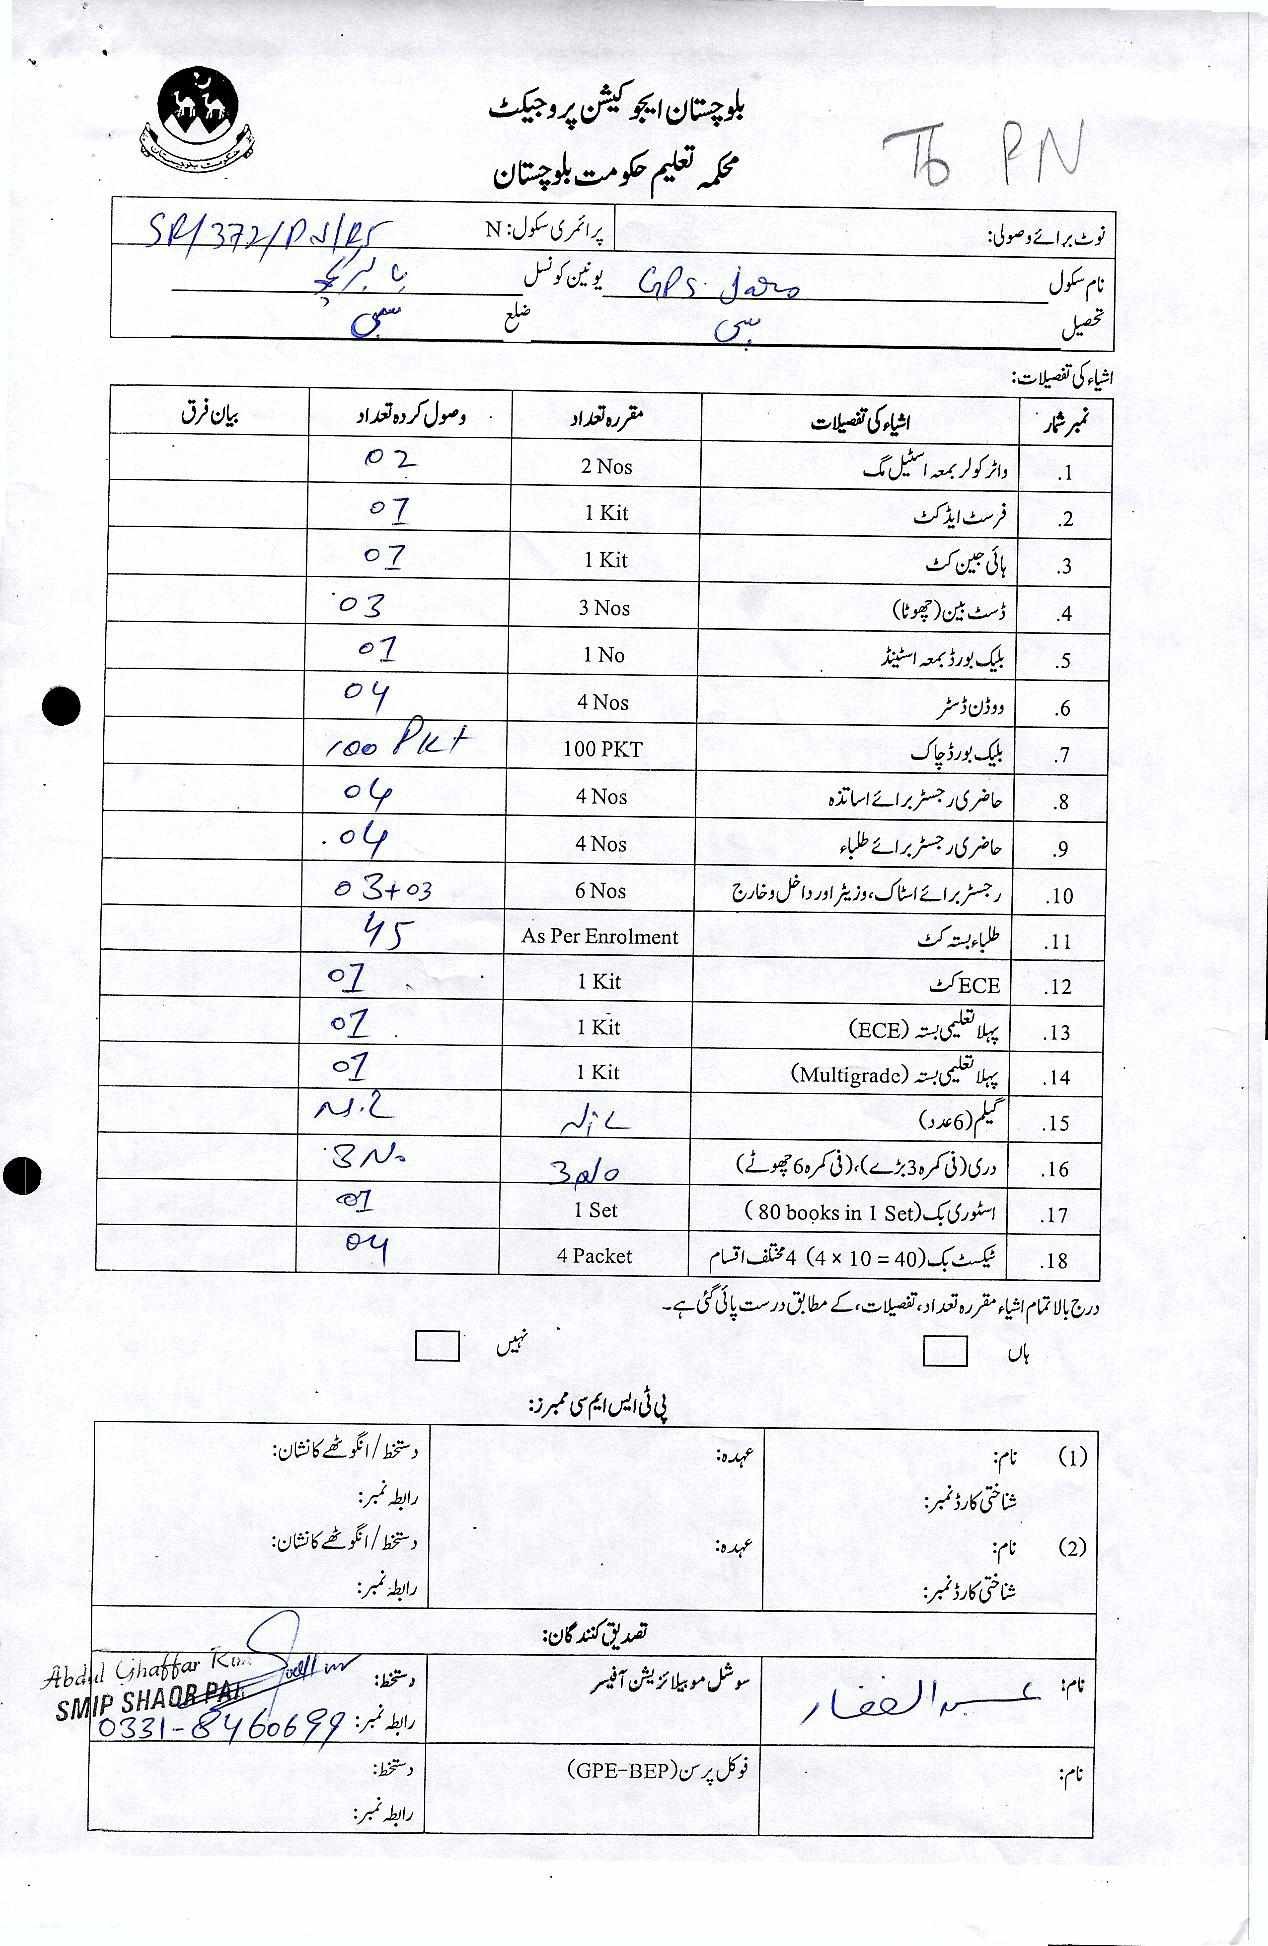 بلوچستان ایجوکیشن پروجیکٹ
محکمہ تعلیم حکومت بلوچستان
To PN
حکومت بلوچستان
نوٹ برائے وصولی: پرائمری سکول: N
نام سکول GPS. Jaro یونین کونسل
تحصیل سبی ضلع سبی
اشیاء کی تفصیلات:
نمبر شمار اشیاء کی تفصیلات مقررہ تعداد وصول کردہ تعداد بیان فرق
1. واٹر کولر بمعہ اسٹیل مگ 2 Nos 02
2. فرسٹ ایڈ کٹ 1 Kit 01
3. ہائی جین کٹ 1 Kit 01
4. ڈسٹ بین (چھوٹا) 3 Nos 03
5. بلیک بورڈ بمعہ اسٹینڈ 1 No 01
6. ووڈن ڈسٹر 4 Nos 04
7. بلیک بورڈ چاک 100 PKT 100 PKt
8. حاضری رجسٹر برائے اساتذہ 4 Nos 04
9. حاضری رجسٹر برائے طلباء 4 Nos 04
10. رجسٹر برائے اسٹاک، وزیٹر اور داخل و خارج 6 Nos 03+03
11. طلباء بستہ کٹ As Per Enrolment 45
12. ECE کٹ 1 Kit 01
13. پہلا تعلیمی بستہ (ECE) 1 Kit 01
14. پہلا تعلیمی بستہ (Multigrade) 1 Kit 01
15. گیلم (6 عدد) Nil Nil
16. دری (فی کمرہ 3 بڑے)، (فی کمرہ 6 چھوٹے) 3 No 3 No
17. اسٹوری بک (80 books in 1 Set) 1 Set 01
18. ٹیکسٹ بک (4 × 10 = 40) 4 مختلف اقسام 4 Packet 04
درج بالا تمام اشیاء مقررہ تعداد، تفصیلات، کے مطابق درست پائی گئی ہے۔
ہاں نہیں
پی ٹی ایس ایم سی ممبرز:
(1) نام: عہدہ: دستخط/انگوٹھے کا نشان:
شناختی کارڈ نمبر: رابطہ نمبر:
(2) نام: عہدہ: دستخط/انگوٹھے کا نشان:
شناختی کارڈ نمبر: رابطہ نمبر:
تصدیق کنندگان:
نام: عبدالغفار سوشل موبیلائزیشن آفیسر دستخط:
Abdul Ghaffar
SMIP SHAOR PAL
رابطہ نمبر: 0331-8460699
نام: فوکل پرسن (GPE-BEP) دستخط:
رابطہ نمبر: